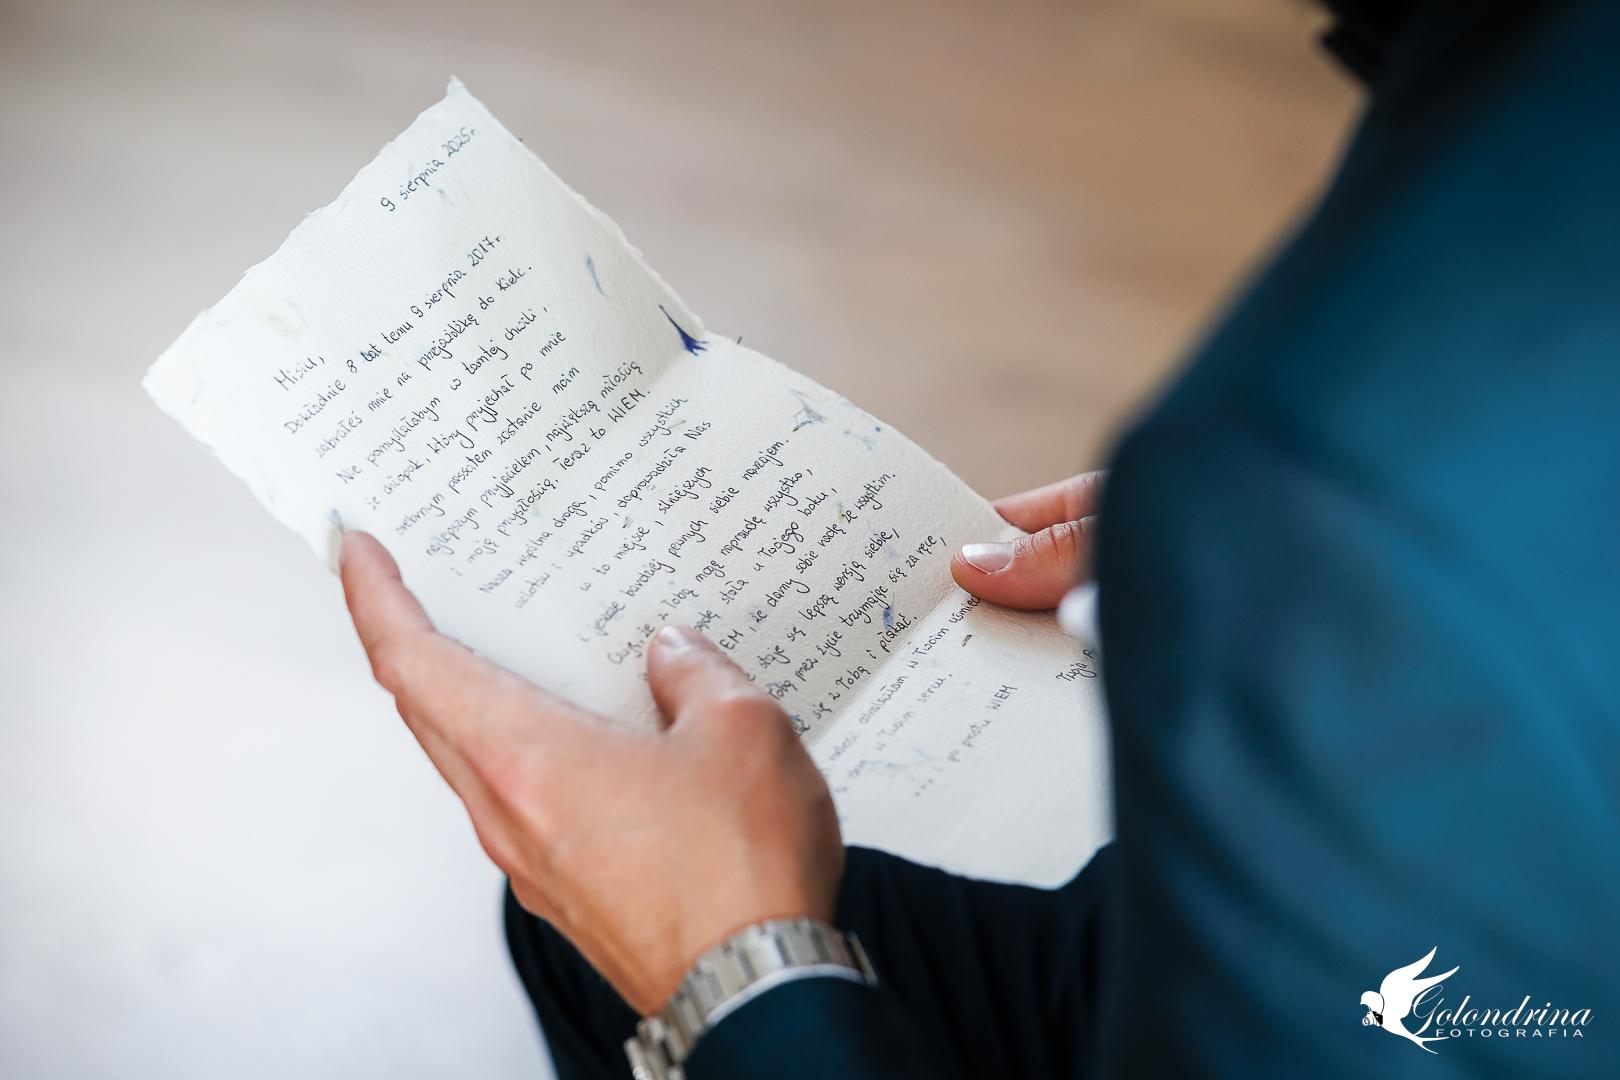 9 sierpnia 2025r.
Misiu,
Dokładnie 8 lat temu 9 sierpnia 2017r.
zabrałeś mnie na przejażdżkę do Kielc.
Nie pomyślałabym w tamtej chwili,
że chłopak, który przyjechał po mnie
srebrnym passatem zostanie moim
najlepszym przyjacielem, największą miłością
i moją przyszłością. Teraz to WIEM.
Nasza wspólna droga, pomimo wszystkich
wzlotów i upadków, doprowadziła Nas
w to miejsce, silniejszych
i jeszcze bardziej pewnych siebie nawzajem.
Czuję, że z Tobą mogę naprawdę wszystko,
stała u Twojego boku,
że damy sobie radę ze wszystkim.
staje się lepszą wersją siebie,
przez życie trzymając się za ręce,
się z Tobą i płakać.
w Twoim
w Twoim sercu,
... i po prostu WIEM
Twoja A
Golondrina
FOTOGRAFIA